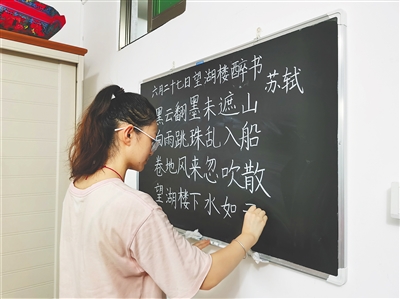 六月二十七日望湖楼醉书 苏轼
黑云翻墨未遮山
雨跳珠乱入船
卷地风来忽吹散
望湖楼下水如